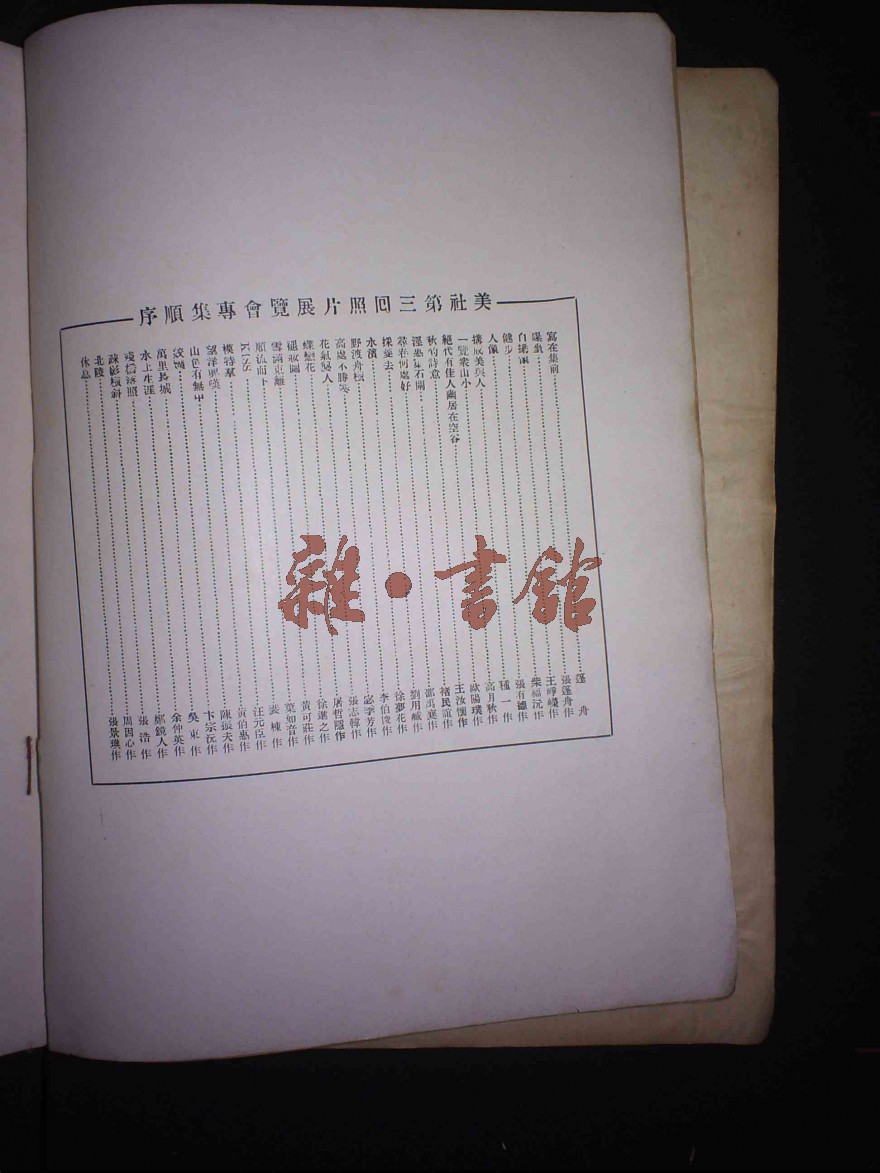 美社第三回照片展覽會專集順序
寫在集前 蓬舟
張蓬舟作
王崢嶸作
健步 柴福沅作
人像 張有德作
構成美與人 種一作
一覽衆山小 高月秋作
絕代有佳人幽居在空谷 歐陽璞作
秋的詩意 王汝懷作
石開 褚民誼作
尋春何處好 邵禹襄作
採藥去 劉用臧作
水濱 徐夢花作
野渡舟橫 李伯俊作
高處不勝寒 宓季芳作
花氣襲人 張志韓作
蝶戀花 屠哲隱作
徐進之作
雪滿東籬 黃可莊作
順流而下 莫如音作
Kiss 裴棟作
模特羣 汪元臣作
望洋興嘆 黃伯惠作
山色有無中 陳振夫作
卞宗沅作
萬里長城 吳東作
水上生涯 余仲英作
落照 鄭鏡人作
疎影橫斜 張浩作
北陵 周因心作
休息 張景璞作
雜·書館